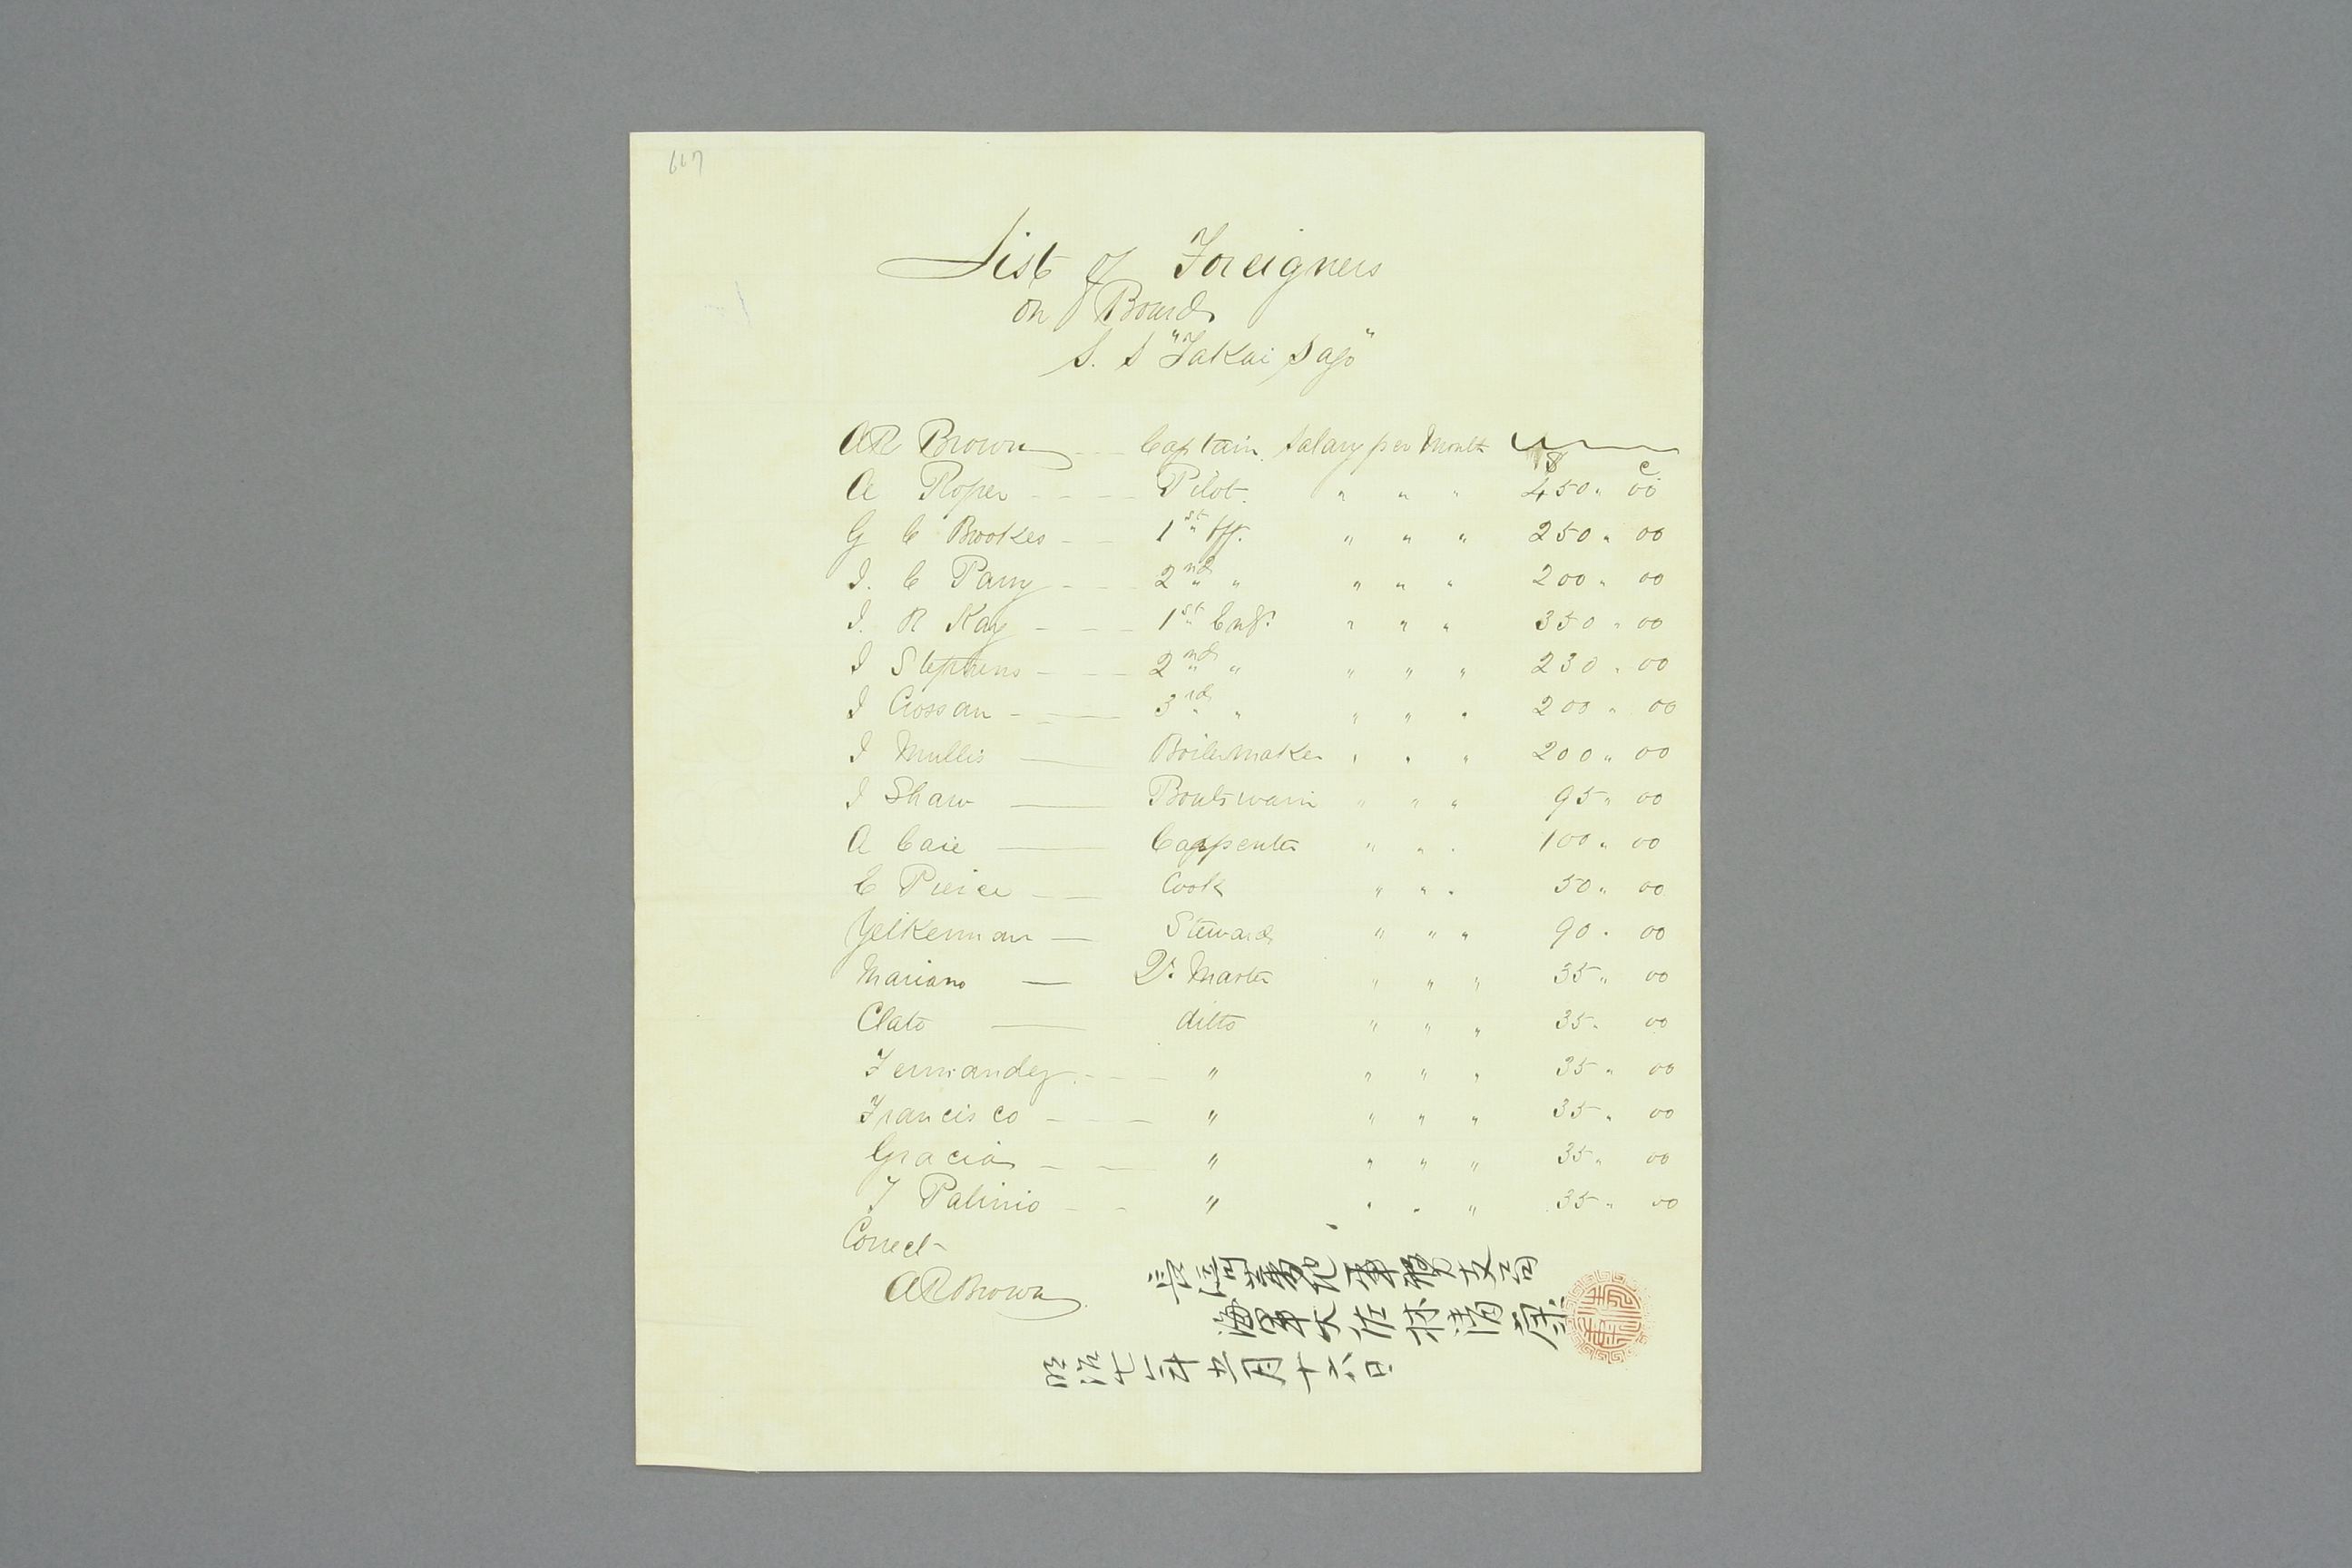 667
List of Foreigners
on Board
S. S "Takai Sago"
AR Brown Captain. Salary per Month
$ c
A Roper Pilot. " " " 450 " 00
G C Brookes 1st Off. " " " 250 " 00
J. C Parry 2nd " " " " 200 " 00
J. R Kay 1st Engr. " " " 350 " 00
J Stephens 2nd " " " " 230 " 00
J Crossan 3rd " " " " 200 " 00
J Mullis Boilermaker " " " 200 " 00
J Shaw Boatswain " " " 95 " 00
A Caie Carpenter " " " 100 " 00
C Pierce Cook " " " 50 " 00
Yelkenman Steward " " " 90 " 00
Mariano Qr. Master " " " 35 " 00
Clato ditto " " " 35 " 00
Fernandez " " " " 35 " 00
Francisco " " " " 35 " 00
Gracia " " " " 35 " 00
F Patinio " " " " 35 " 00
Correct
AR Brown
長崎蕃地事務支局
海軍大佐林清康
明治七年五月十六日